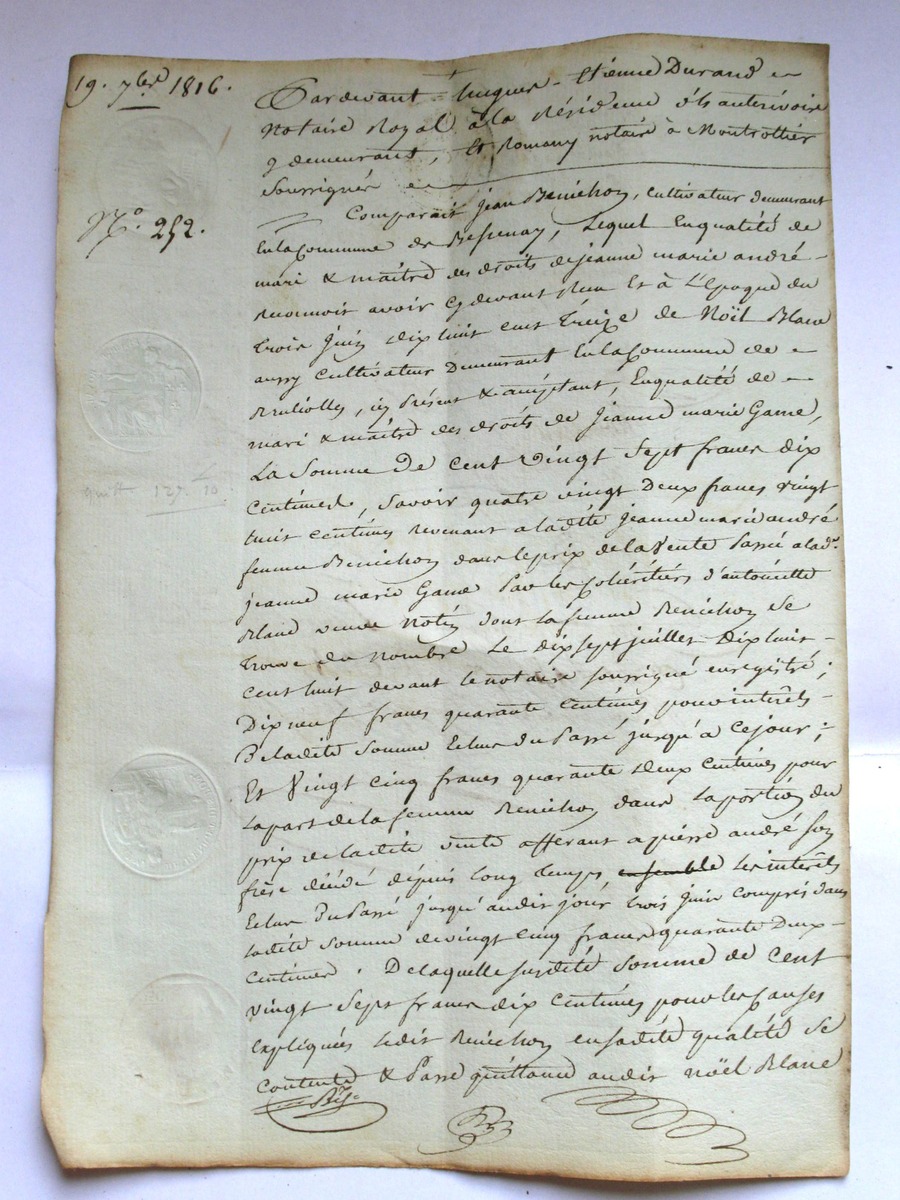 19. 7bre 1816.
Pardevant hugues - Etienne Durand
Notaire Royal à la Résidence d'hauterivoire
y demeurant, et Romany notaire à Montrottier
soussignés
N° 252.
Comparait jean Benichon, cultivateur demeurant
En la Commune de Bessenay, Lequel En qualité de
mari & maître des droits de jeanne marie andré
reconnoit avoir cy devant Reçu Et à L'époque du
trois juin dix huit cent treize de Noël Blanc
aussy cultivateur Demeurant En la Commune de
Brullioles, icy Présent & acceptant, En qualité de
mari & maître des droits de jeanne marie Game,
La Somme de cent vingt sept francs dix
centimes, savoir quatre vingt deux francs vingt
huit centimes revenant a ladite jeanne marie andré
femme Benichon dans le prix de la vente Passée a lad.e
jeanne marie Game Par les Cohéritiers d'antoinette
Blanc veuve dont la femme Benichon se
trouve du nombre Le dix sept juillet dix huit
cent huit devant le notaire soussigné enregistré;
Dix neuf francs quarante centimes pour interêts
De ladite somme Echus Du Passé jusqu'à ce jour;
Et Vingt cinq francs quarante deux centimes pour
la part de la femme Benichon dans la portion du
prix de ladite vente afferant a pierre andré son
frère décédé depuis long temps ensemble les interêts
Echus Du Passé jusqu'audit jour trois juin compris dans
ladite somme de vingt cinq francs quarante deux
centimes. De laquelle susdite somme de cent
vingt sept francs dix centimes pour les causes
Expliquées ledit Benichon en sadite qualité se
contente & Passe quittance audit noël Blanc